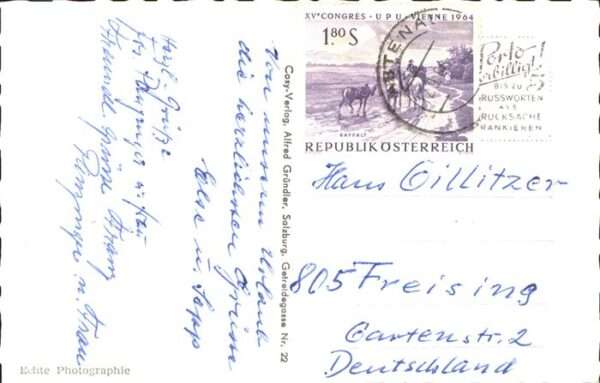 XV CONGRES · U P U · VIENNE 1964
1.80 S
RAFFALT
REPUBLIK ÖSTERREICH
Porto
verbilligt
BIS ZU 5
GRUSSWORTEN
ALS
DRUCKSACHE
FRANKIEREN
Von unserem Urlaub
die herzlichsten Grüsse
Else u. Sepp
Herzl. Grüße
Cosy-Verlag, Alfred Gründler, Salzburg, Getreidegasse Nr. 22
Hans Gillitzer
805 Freising
Gartenstr. 2
Deutschland
Echte Photographie